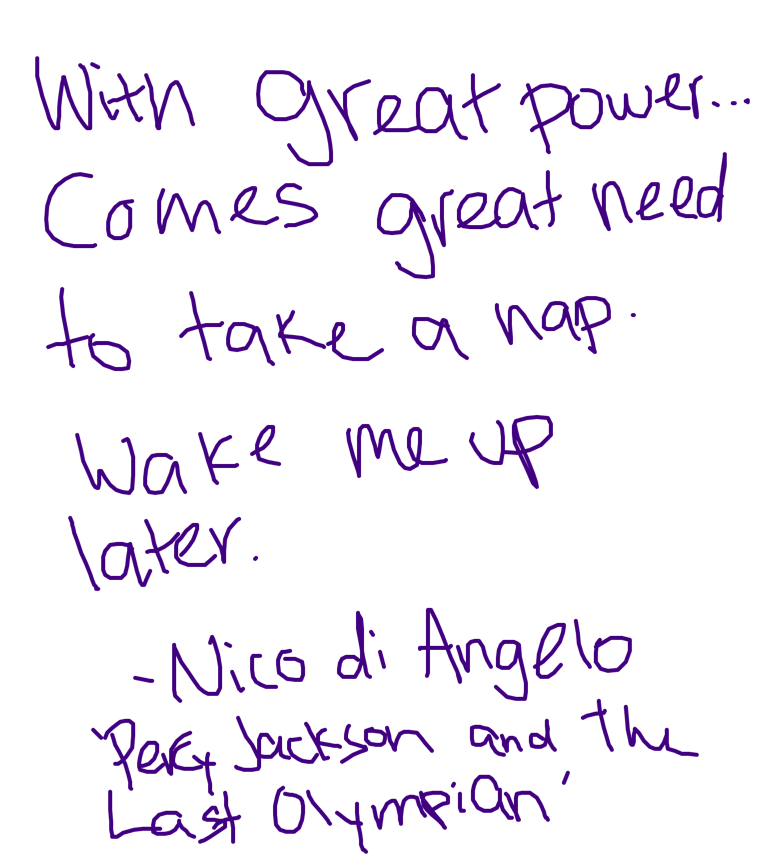 With great power...
Comes great need
to take a nap.
Wake me up
later.
- Nico di Angelo
'Percy Jackson and the
Last Olympian'